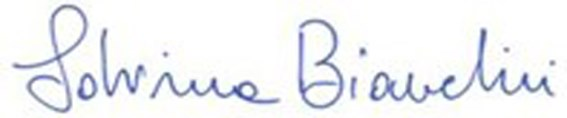 Sabrina Bianchini